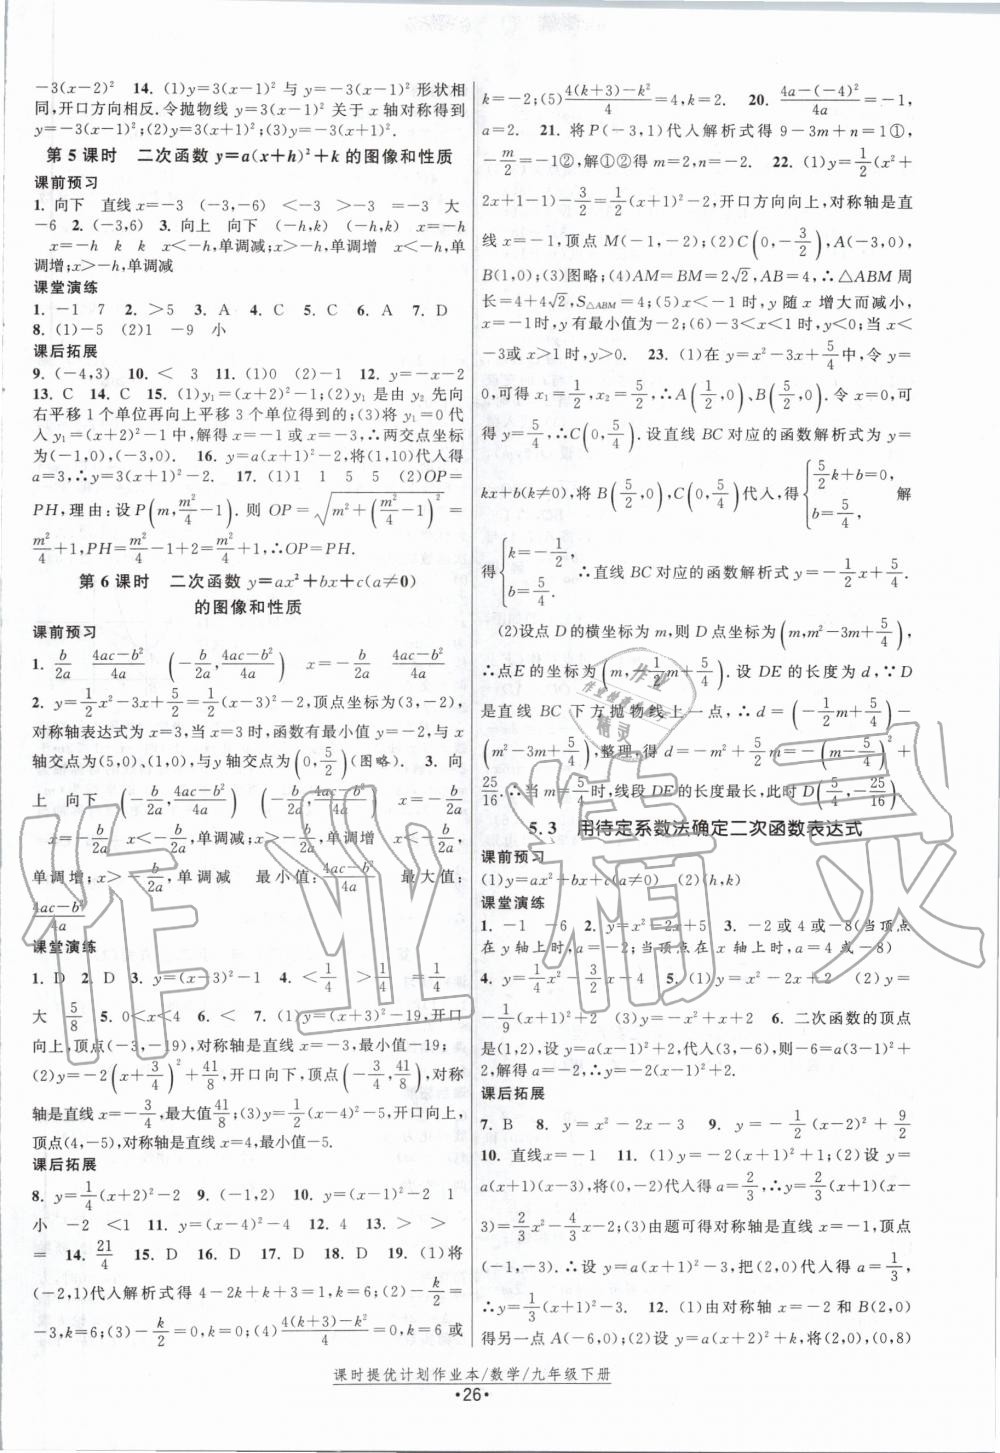 -3(x-2)² 14. (1)y=3(x-1)² 与 y=-3(x-1)² 形状相
同,开口方向相反.令抛物线 y=3(x-1)² 关于 x 轴对称得到
y=-3(x-1)²;(2)y=3(x+1)²;(3)y=-3(x+1)².
第 5 课时 二次函数 y=a(x+h)²+k 的图像和性质
课前预习
1. 向下 直线 x=-3 (-3,-6) <-3 >-3 =-3 大
-6 2. (-3,6) 3. 向上 向下 (-h,k) (-h,k) x=-h
x=-h k k x<-h,单调减;x>-h,单调增 x<-h,单
调增;x>-h,单调减
课堂演练
1. -1 7 2. >5 3. A 4. C 5. C 6. A 7. D
8. (1)-5 (2)1 -9 小
课后拓展
9. (-4,3) 10. < 3 11. (1)0 (2)-1 12. y=-x-2
13. C 14. C 15. (1)y₁=(x+2)²-1;(2)y₁ 是由 y₂ 先向
右平移 1 个单位再向上平移 3 个单位得到的;(3)将 y₁=0 代
入 y₁=(x+2)²-1 中,解得 x=-1 或 x=-3,∴两交点坐标
为(-1,0),(-3,0). 16. y=a(x+1)²-2,将(1,10)代入得
a=3,∴y=3(x+1)²-2. 17. (1)1 1 5 5 (2)OP=
PH,理由:设 P(m,m²/4-1). 则 OP=√(m²+(m²/4-1)²)=
m²/4+1,PH=m²/4-1+2=m²/4+1,∴OP=PH.
第 6 课时 二次函数 y=ax²+bx+c(a≠0)
的图像和性质
课前预习
1. -b/2a (4ac-b²)/4a (-b/2a,(4ac-b²)/4a) x=-b/2a (4ac-b²)/4a
2. y=1/2x²-3x+5/2=1/2(x-3)²-2,顶点坐标为(3,-2),
对称轴表达式为 x=3,当 x=3 时,函数有最小值 y=-2,与 x
轴交点为(5,0)、(1,0),与 y 轴交点为(0,5/2)(图略). 3. 向
上 向下 (-b/2a,(4ac-b²)/4a) (-b/2a,(4ac-b²)/4a) x=-b/2a
x=-b/2a x<-b/2a,单调减;x>-b/2a,单调增 x<-b/2a,
单调增;x>-b/2a,单调减 最小值:(4ac-b²)/4a 最大值:
(4ac-b²)/4a
课堂演练
1. D 2. D 3. y=(x-3)²-1 4. <1/4 >1/4 =1/4
大 5/8 5. 0<x<4 6. < 7. (1)y=(x+3)²-19,开口
向上,顶点(-3,-19),对称轴是直线 x=-3,最小值-19;
(2)y=-2(x+3/4)²+41/8,开口向下,顶点(-3/4,41/8),对称
轴是直线 x=-3/4,最大值41/8;(3)y=1/4(x-4)²-5,开口向上,
顶点(4,-5),对称轴是直线 x=4,最小值-5.
课后拓展
8. y=1/4(x+2)²-2 9. (-1,2) 10. y=(x-1)²-2 1
小 -2 <1 11. y=(x-4)²-4 12. 4 13. > >
= 14. 21/4 15. D 16. D 17. D 18. D 19. (1)将
(-2,1)代入解析式得 4-2k+k+3=1,k=6;(2)-k/2=
-3,k=6;(3)-k/2=0,k=0;(4)(4(k+3)-k²)/4=0,k=6 或
k=-2;(5)(4(k+3)-k²)/4=4,k=2. 20. (4a-(-4)²)/4a=-1,
a=2. 21. 将 P(-3,1)代入解析式得 9-3m+n=1①,
-m/2=-1②,解①②得 m=2,n=-2. 22. (1)y=1/2(x²+
2x+1-1)-3/2=1/2(x+1)²-2,开口方向向上,对称轴是直
线 x=-1,顶点 M(-1,-2);(2)C(0,-3/2),A(-3,0),
B(1,0);(3)图略;(4)AM=BM=2√2,AB=4,∴△ABM 周
长=4+4√2,S△ABM=4;(5)x<-1 时,y 随 x 增大而减小,
x=-1 时,y 有最小值为-2;(6)-3<x<1 时,y<0;当 x<
-3或 x>1 时,y>0. 23. (1)在 y=x²-3x+5/4中,令 y=
0,可得 x₁=1/2,x₂=5/2,∴A(1/2,0)、B(5/2,0). 令 x=0,可
得 y=5/4,∴C(0,5/4). 设直线 BC 对应的函数解析式为 y=
kx+b(k≠0),将 B(5/2,0),C(0,5/4)代入,得{5/2k+b=0, b=5/4, 解
得{k=-1/2, b=5/4. ∴直线 BC 对应的函数解析式 y=-1/2x+5/4.
(2)设点 D 的横坐标为 m,则 D 点坐标为(m,m²-3m+5/4),
∴点E 的坐标为(m,-1/2m+5/4). 设 DE 的长度为 d. ∵D
是直线 BC 下方抛物线上一点,∴d=(-1/2m+5/4)-
(m²-3m+5/4),整理,得 d=-m²+5/2m=-(m-5/4)²+
25/16.∴当 m=5/4时,线段 DE 的长度最长,此时 D(5/4,-15/16).
5.3 用待定系数法确定二次函数表达式
课前预习
(1)y=ax²+bx+c(a≠0) (2)(h,k)
课堂演练
1. -1 -6 2. y=x²-2x+5 3. -2或4或-8(当顶点
在 y 轴上时,a=-2;当顶点在 x 轴上时,a=4 或-8)
4. y=1/4x²-3/2x-4 5. (1)y=x²-2x+2 (2)y=
-1/9(x+1)²+2 (3)y=-x²+x+2 6. 二次函数的顶点
是(1,2),设 y=a(x-1)²+2,代入(3,-6),则-6=a(3-1)²+
2,解得 a=-2,∴y=-2(x-1)²+2.
课后拓展
7. B 8. y=x²-2x-3 9. y=-1/2(x-2)²+9/2
10. 直线x=-1 11. (1)y=-2(x+1)²+1;(2)设 y=
a(x+1)(x-3),将(0,-2)代入得 a=2/3,∴y=2/3(x+1)(x-
3)=2/3x²-4/3x-2;(3)由题可得对称轴是直线 x=-1,顶点
(-1,-3).∴设 y=a(x+1)²-3,把(2,0)代入得 a=1/3,
∴y=1/3(x+1)²-3. 12. (1)由对称轴 x=-2 和 B(2,0)
得另一点 A(-6,0);(2)设 y=a(x+2)²+k,将(2,0),(0,8)
课时提优计划作业本/数学/九年级下册
·26·
作业精灵